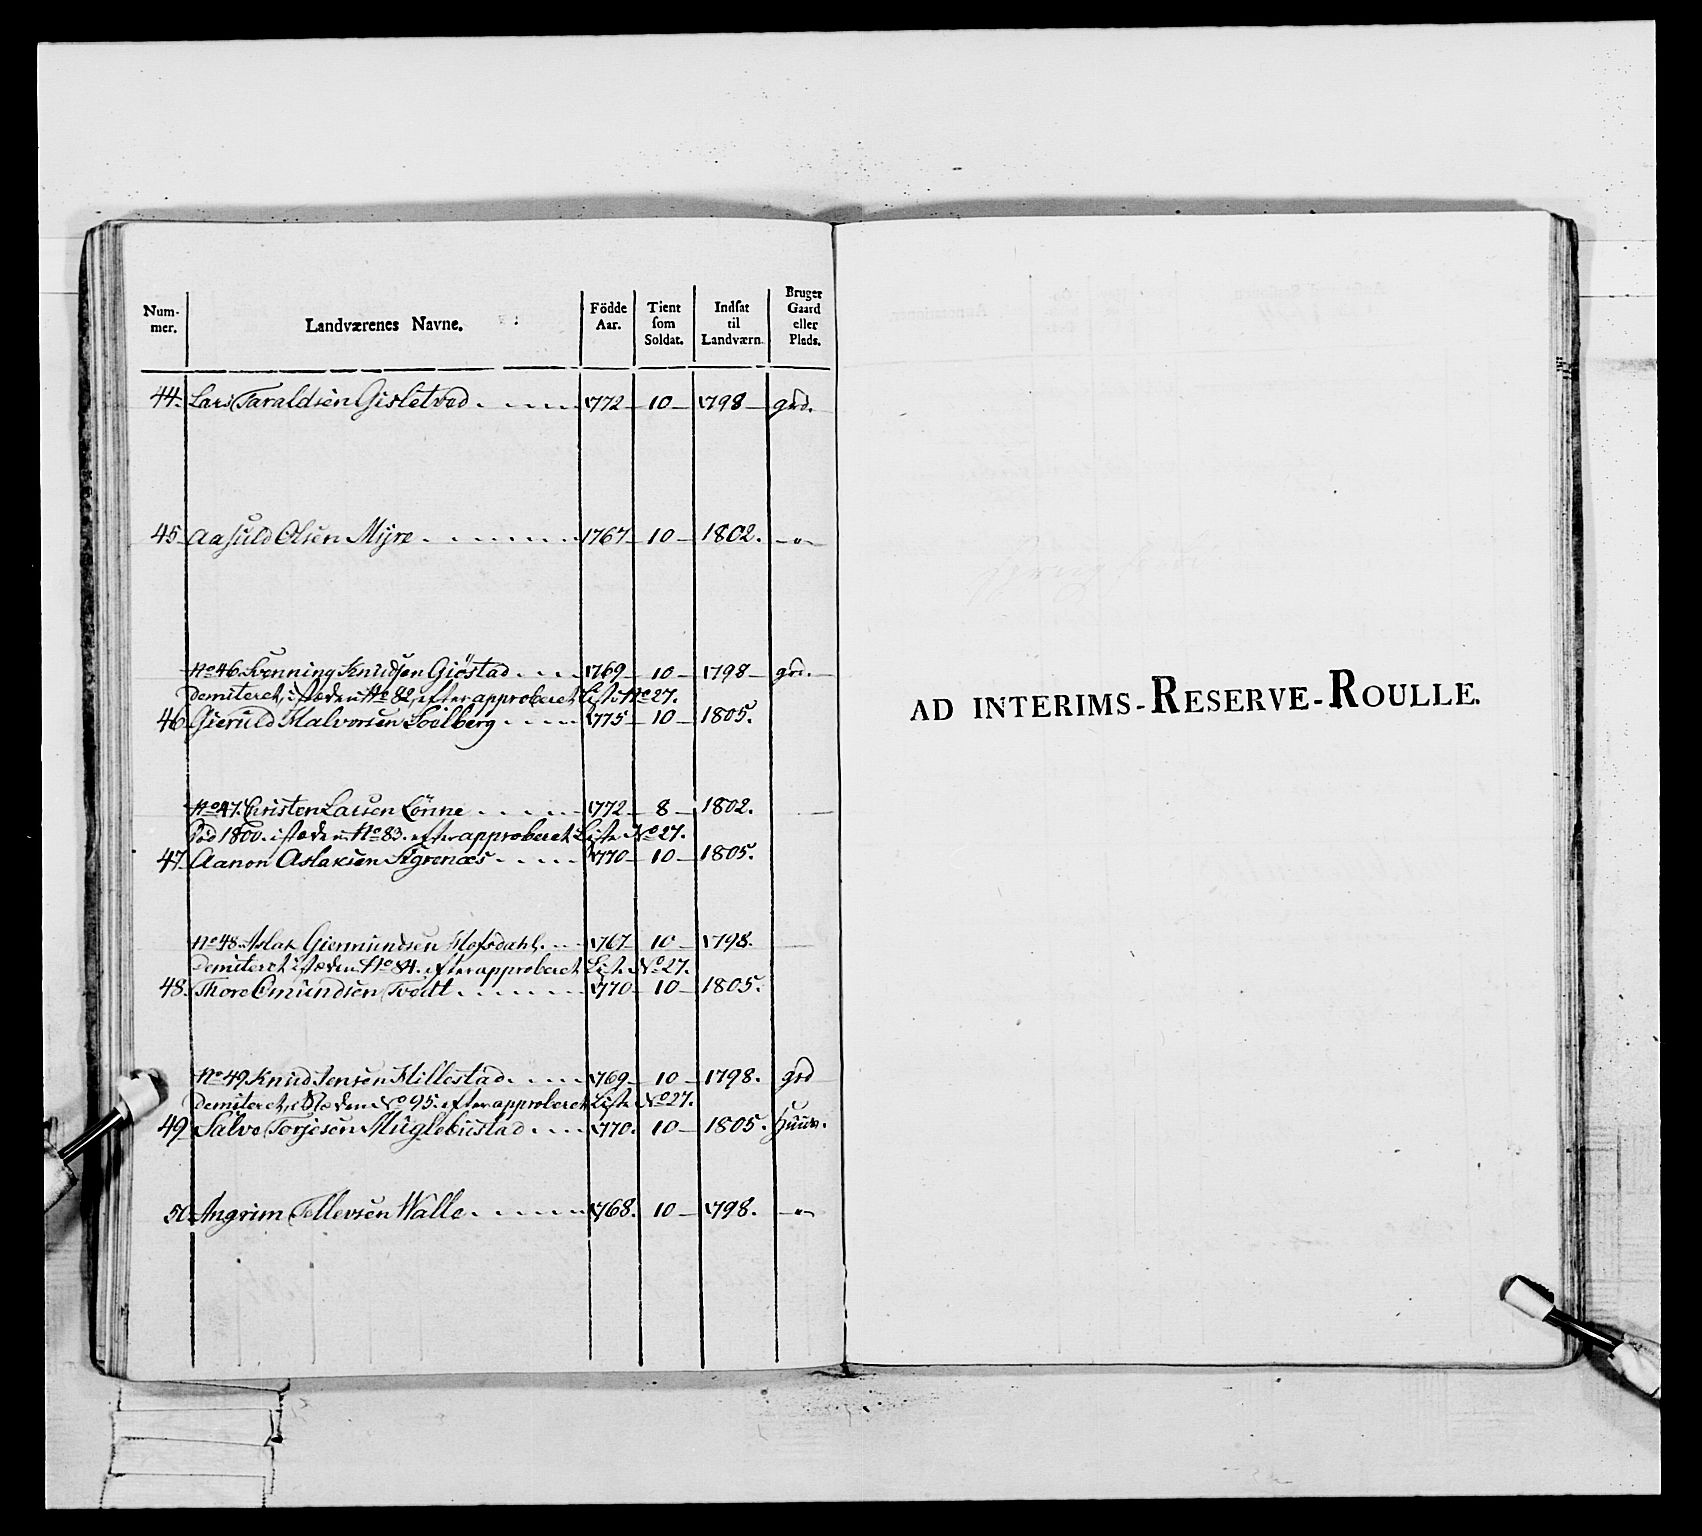 Num-mer. Landværenes Navne. Födde Aar. Tient som Soldat. Indsat til Landværn. Bruger Gaard eller Plads.
44. Lars Taraldsen Gisletvod. 1772 10 1798 grd.
45 Aasuld Olsen Myre 1767 10 1802. "
No 46 Svenning Knudsen Giöstad 1769 10 1798 grd.
Demiteret, isteden No 82, efter approberet Liste No 27.
46 Gieruld Halvorsen Soelberg 1775 10 1805.
No 47. Christen Larsen Lönne 1772 8 1802.
Död 1800. isteden No 83. efter approberet Liste No 27.
47 Aanon Aslaksen 1770 10 1805.
No 48. Aslak Giermundsen Hofsdahl. 1767 10 1798.
Demiteret isteden No 84. efter approberet List. No 27.
48. Thore Omundsen Tvedt 1770 10 1805.
No 49 Knud Jensen Hillestad. 1769 10 1798. grd
Demiteret, isteden No 95. efter approberet List. No 27.
49 Salve Torjesen Muglebustad 1770. 10 1805. Huus.
50. Angrim Tellevsen Walle 1768. 10 1798. "
AD INTERIMS-RESERVE-ROULLE.